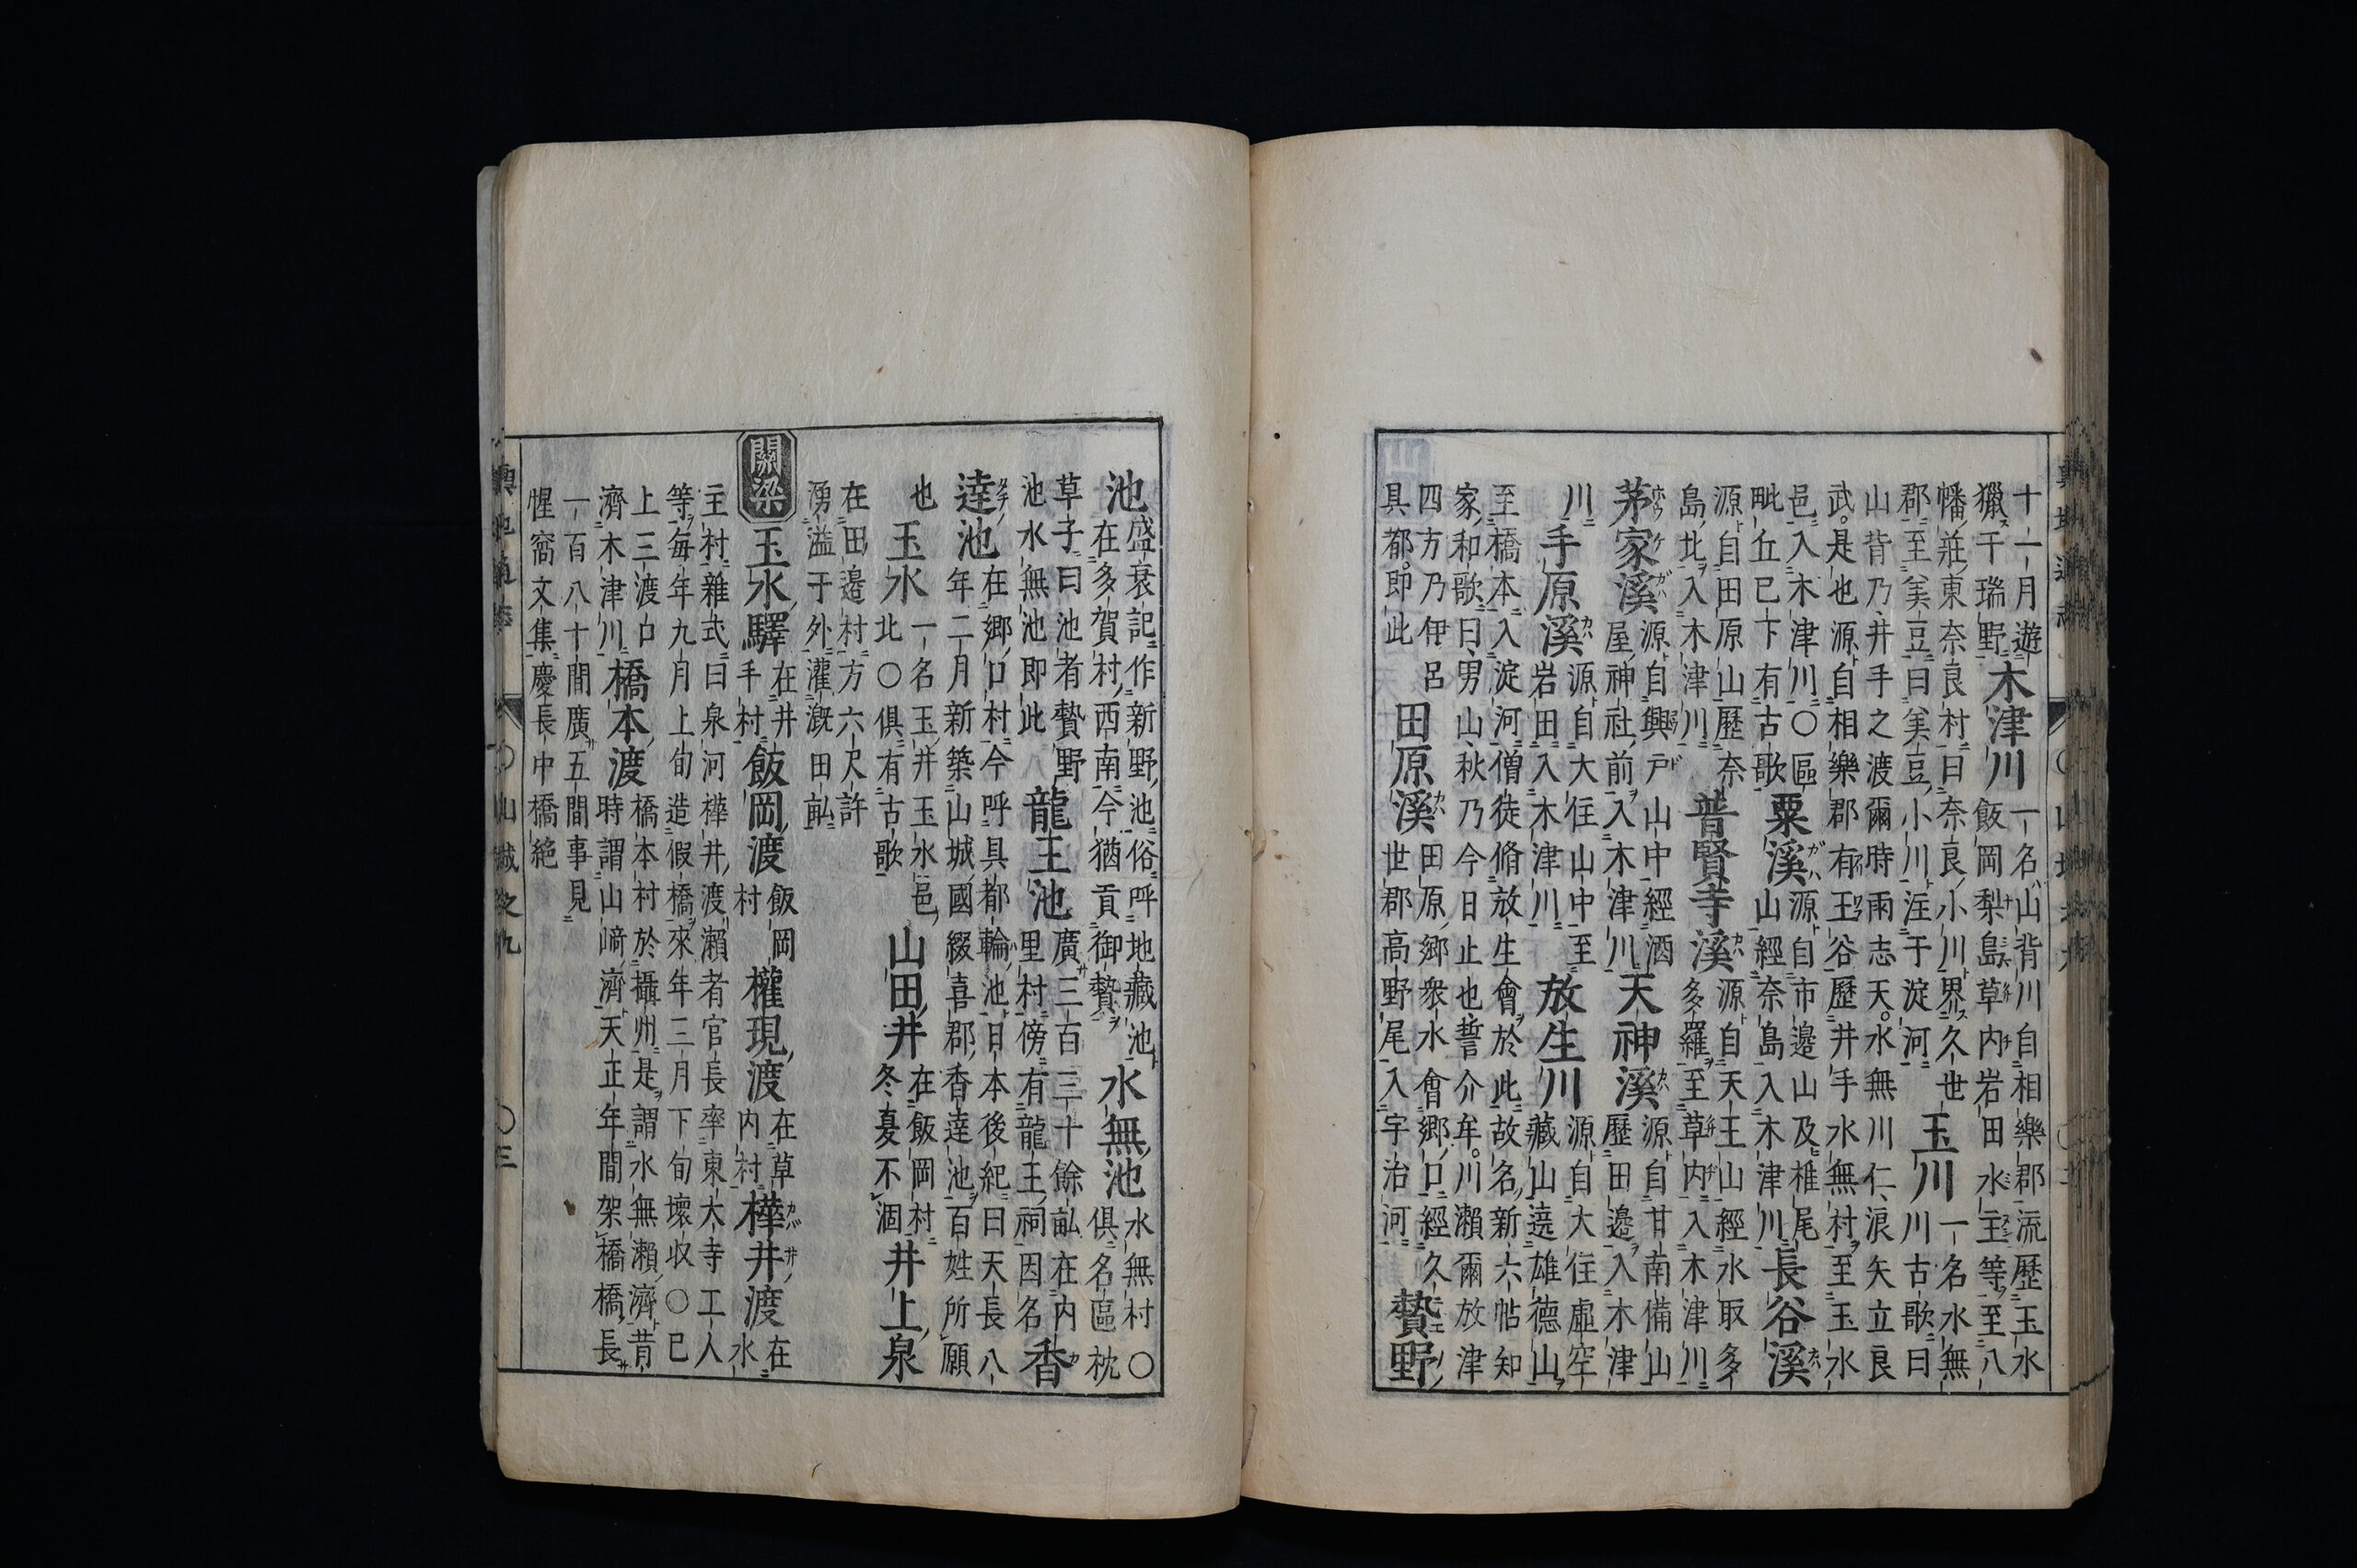 十一月遊
獵于瑞野木津川一名山背川自相樂郡流歷玉水
飯岡梨島草内岩田水主等至八
幡莊東奈良村曰奈良小川界久世
郡至美豆曰美豆小川注于淀河玉川一名水無
川古歌曰
山背乃井手之渡爾時雨志天水無川仁浪矢立良
武是也源自相樂郡有王谷歷井手水無村至玉水
邑入木津川〇區
毗丘巳下有古歌粟溪源自市邊山及椎尾
山經奈島入木津川長谷溪
源自田原山歷奈
島北入木津川普賢寺溪源自天王山經水取多
多羅至草内入木津川
茅家溪源自興戸山中經酒
屋神社前入木津川天神溪源自甘南備山
歷田邊入木津
川手原溪源自大住山中至
岩田入木津川放生川源自大住虛空
藏山遶雄德山
至橋本入淀河僧徒脩放生會於此故名新六帖知
家和歌曰男山秋乃今日止也誓介牟川瀨爾放津
四方乃伊呂
具都即此田原溪田原郷衆水會郷口經久
世郡高野尾入宇治河贄野
池盛衰記作新野池俗呼地藏池
在多賀村西南今猶貢御贄水無池水無村〇
俱名區枕
草子曰池者贄野
池水無池即此龍王池廣三百三十餘畝在内
里村傍有龍王祠因名香
達池在郷口村今呼具都輪池日本後紀曰天長八
年二月新築山城國綴喜郡香達池百姓所願
也玉水一名玉井玉水邑
北〇俱有古歌山田井在飯岡村
冬夏不涸井上泉
在田邊村方六尺許
湧溢于外灌漑田畝
關梁玉水驛在井
手村飯岡渡飯岡
村權現渡在草
内村樺井渡在
水
主村雜式曰泉河樺井渡瀨者官長率東大寺工人
等每年九月上旬造假橋來年三月下旬壞收〇巳
上三渡口
濟木津川橋本渡橋本村於攝州是謂水無瀨濟昔
時謂山﨑濟天正年間架橋橋長
一百八十間廣五間事見
惺窩文集慶長中橋絶
山城之九
〇三